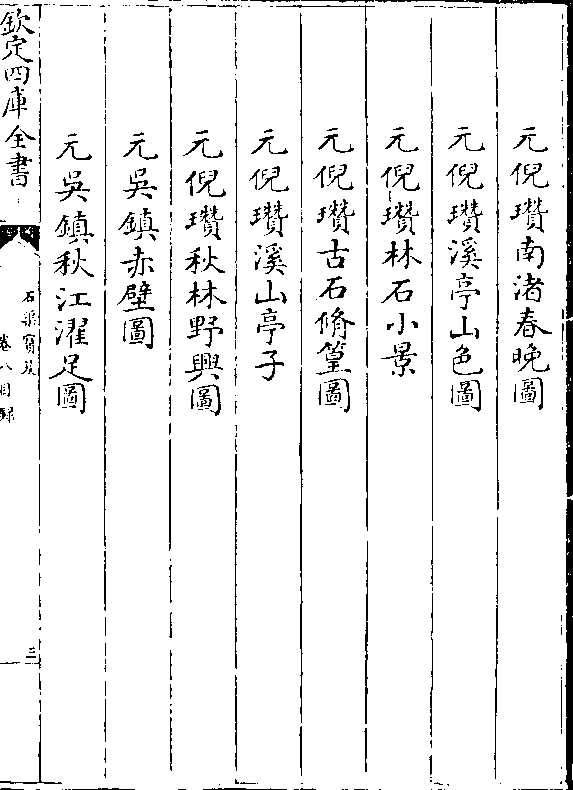 元倪瓚南渚春晚圖
元倪瓚溪亭山色圖
元倪瓚林石小景
元倪瓚古石脩篁圖
元倪瓚溪山亭子
元倪瓚秋林野興圖
元吳鎮赤壁圖
元吳鎮秋江濯足圖
欽定四庫全書
石渠寶笈
卷八目錄
三